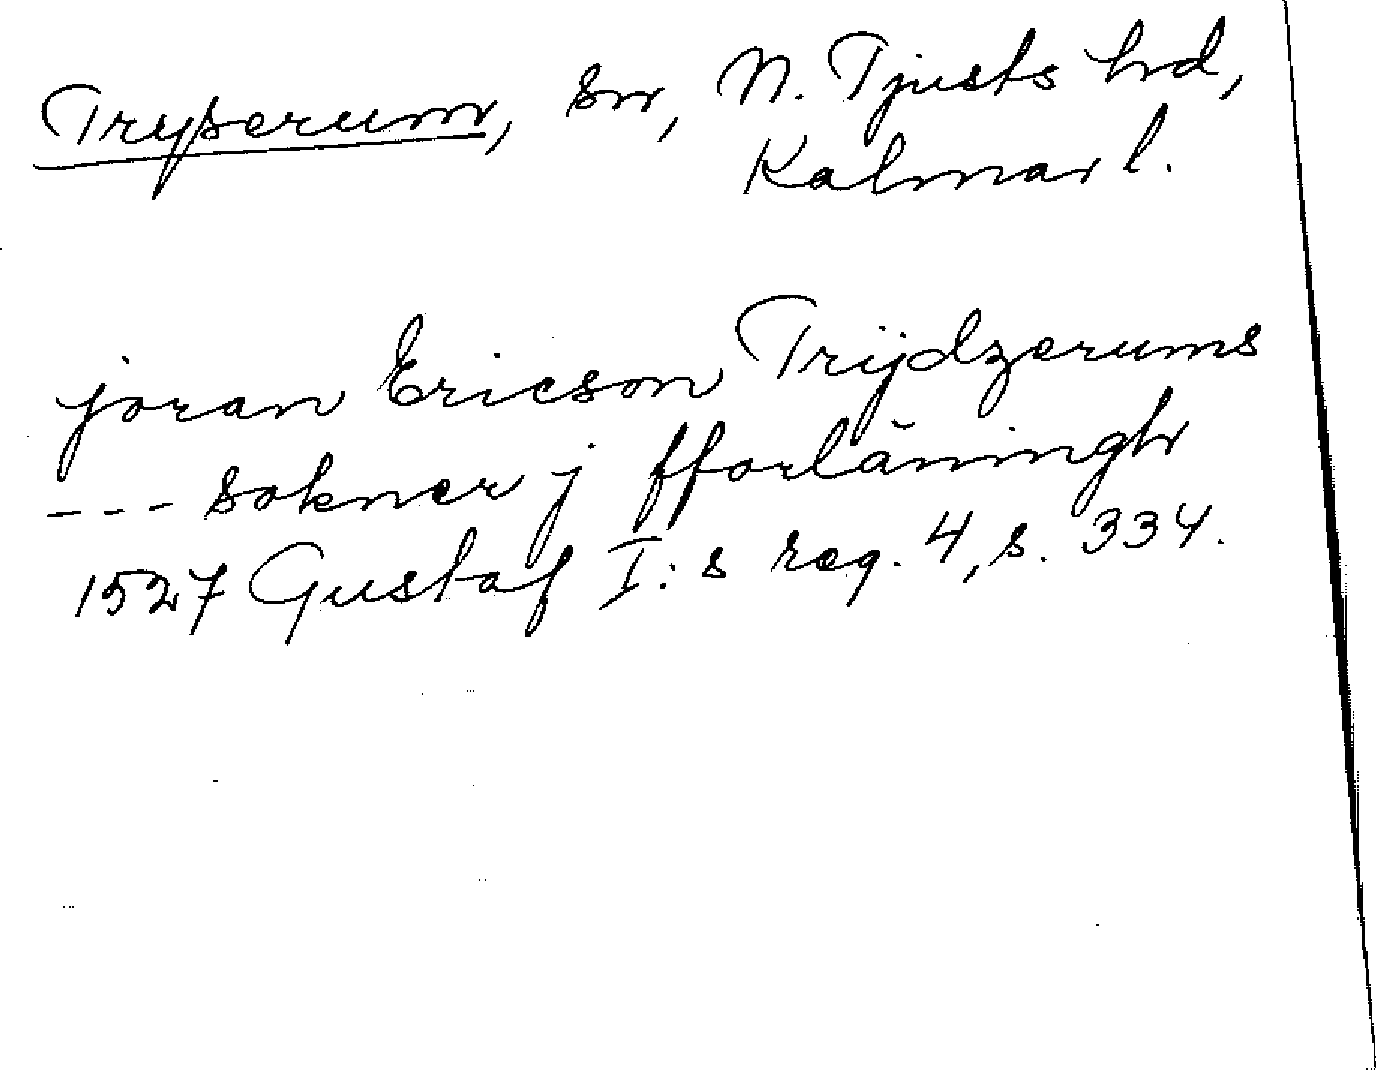 Tryserum, sn, N. Tjusts hd,
Kalmar l.
joran Ericson Trijdzerums
--- sokner j fforlăningh
1527 Gustaf I:s reg. 4, s. 334.